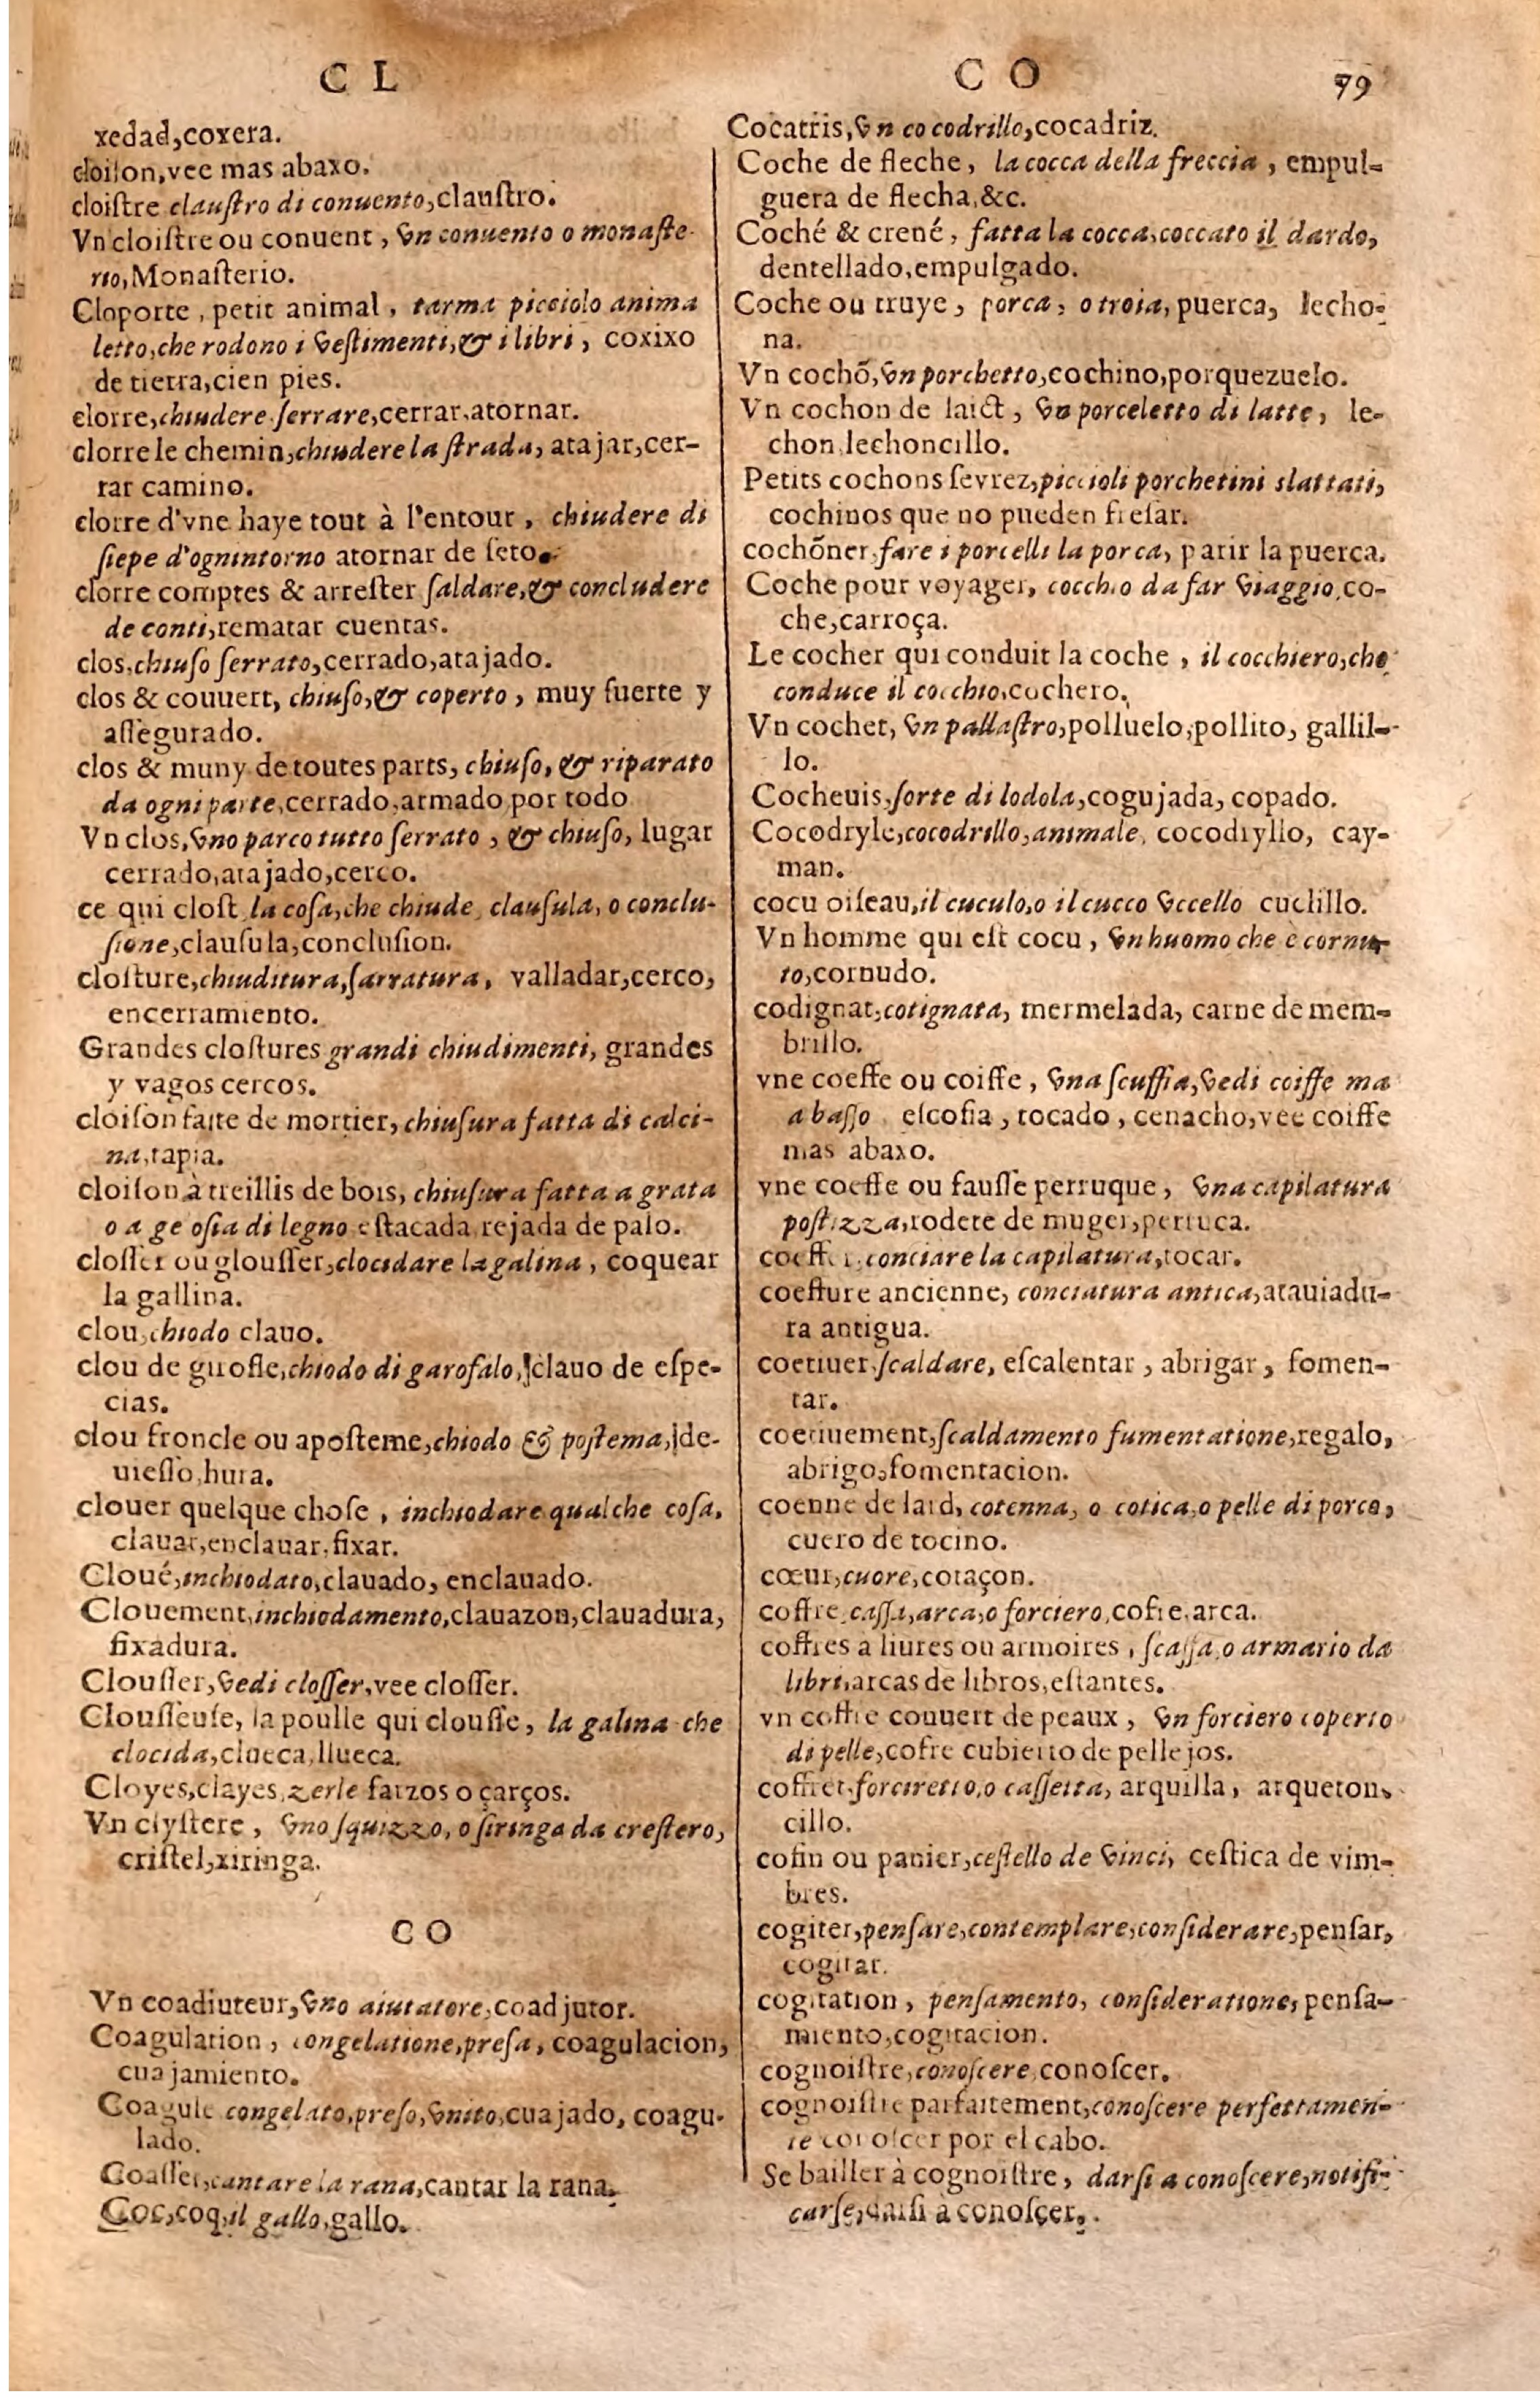 C L
xedad,coxera.
cloison,vee mas abaxo.
cloiſtre clauſtro di conuento,clauſtro.
Vn cloiſtre ou conuent, vn conuento o monaſte-
rio,Monaſterio.
Cloporte, petit animal, tarma picciolo anima
letto,che rodono i veſtimenti,& i libri, coxixo
de tierra,cien pies.
clorre,chiudere ſerrare,cerrar,atornar.
clorre le chemin,chiudere la ſtrada, atajar,cer-
rar camino.
clorre d'vne haye tout à l'entour, chiudere di
ſiepe d'ognintorno atornar de ſeto.
clorre comptes & arreſter ſaldare,& concludere
de conti,rematar cuentas.
clos,chiuſo ſerrato,cerrado,atajado.
clos & couuert, chiuſo,& coperto, muy fuerte y
aſſegurado.
clos & muny de toutes parts, chiuſo, & riparato
da ogni parte,cerrado,armado por todo
Vn clos,vno parco tutto ſerrato, & chiuſo, lugar
cerrado,atajado,cerco.
ce qui cloſt la coſa,che chiude, clauſula, o conclu-
ſione,clauſula,concluſion.
cloſture,chiuditura,ſarratura, valladar,cerco,
encerramiento.
Grandes cloſtures grandi chiudimenti, grandes
y vagos cercos.
cloiſon faite de mortier, chiuſura fatta di calci-
na,tapia.
cloiſon à treillis de bois, chiuſura fatta a grata
o a geloſia di legno eſtacada rejada de palo.
cloſſer ou glouſſer,clocidare la galina, coquear
la gallina.
clou,chiodo clauo.
clou de girofle,chiodo di garofalo,clauo de eſpe-
cias.
clou froncle ou apoſteme,chiodo & poſtema,de-
uieſſo,hura.
clouer quelque choſe, inchiodare qualche coſa,
clauar,enclauar,fixar.
Cloué,inchiodato,clauado, enclauado.
Clouement,inchiodamento,clauazon,clauadura,
fixadura.
Clouſſer,vedi cloſſer,vee cloſſer.
Clouſſeuſe, la poulle qui clouſſe, la galina che
clocida,clueca,llueca.
Cloyes,clayes,zerle farzos o çarços.
Vn clyſtere, vno ſquizzo, o ſiringa da creſtero,
criſtel,xiringa.
C O
Vn coadiuteur,vno aiutatore,coadjutor.
Coagulation, congelatione,preſa, coagulacion,
cuajamiento.
Coagulé congelato,preſo,vnito,cuajado, coagu-
lado.
Coaſſer,cantare la rana,cantar la rana.
Coc,coq,il gallo,gallo.
C O 79
Cocatris,vn cocodrillo,cocadriz.
Coche de fleche, la cocca della freccia, empul-
guera de flecha,&c.
Coché & crené, fatta la cocca,coccato il dardo,
dentellado,empulgado.
Coche ou truye, porca, o troia, puerca, lecho-
na.
Vn cochõ,vn porchetto,cochino,porquezuelo.
Vn cochon de laict, vn porceletto di latte, le-
chon lechoncillo.
Petits cochons ſevrez,piccioli porchetini slattati,
cochinos que no pueden freſar.
cochõner,fare i porcelli la porca, parir la puerca.
Coche pour voyager, cocchio da far viaggio,co-
che,carroça.
Le cocher qui conduit la coche, il cocchiero,che
conduce il cocchio,cochero.
Vn cochet, vn pallaſtro,polluelo,pollito, gallil-
lo.
Cocheuis,ſorte di lodola,cogujada, copado.
Cocodryle,cocodrillo,animale, cocodryllo, cay-
man.
cocu oiſeau,il cuculo,o il cucco vccello cuclillo.
Vn homme qui eſt cocu, vn huomo che è cornu-
to,cornudo.
codignat,cotignata, mermelada, carne de mem-
brillo.
vne coeffe ou coiffe, vna ſcuffia,vedi coiffe ma
a baſſo eſcofia, tocado, cenacho,vee coiffe
mas abaxo.
vne coeffe ou fauſſe perruque, vna capilatura
poſtizza,rodete de muger,perruca.
coeffer,conciare la capilatura,tocar.
coeffure ancienne, conciatura antica,atauiadu-
ra antigua.
coetiuer,ſcaldare, eſcalentar, abrigar, fomen-
tar.
coetiuement,ſcaldamento fumentatione,regalo,
abrigo,fomentacion.
coenne de lard, cotenna, o cotica,o pelle di porco,
cuero de tocino.
cœur,cuore,coraçon.
coffre,caſſa,arca,o forciero,cofre,arca.
coffres à liures ou armoires, ſcaſſa,o armario da
libri,arcas de libros,eſtantes.
vn coffre couuert de peaux, vn forciero coperto
di pelle,cofre cubierto de pellejos.
coffret,forciretto,o caſſetta, arquilla, arqueton-
cillo.
cofin ou panier,ceſtello de vinci, ceſtica de vim-
bres.
cogiter,penſare,contemplare,conſiderare,penſar,
cogitar.
cogitation, penſamento, conſideratione, penſa-
miento,cogitacion.
cognoiſtre,conoſcere,conoſcer.
cognoiſtre parfaitement,conoſcere perfettamen-
te conoſcer por el cabo.
Se bailler à cognoiſtre, darſi a conoſcere,notifi-
carſe,darſi à conoſçer.